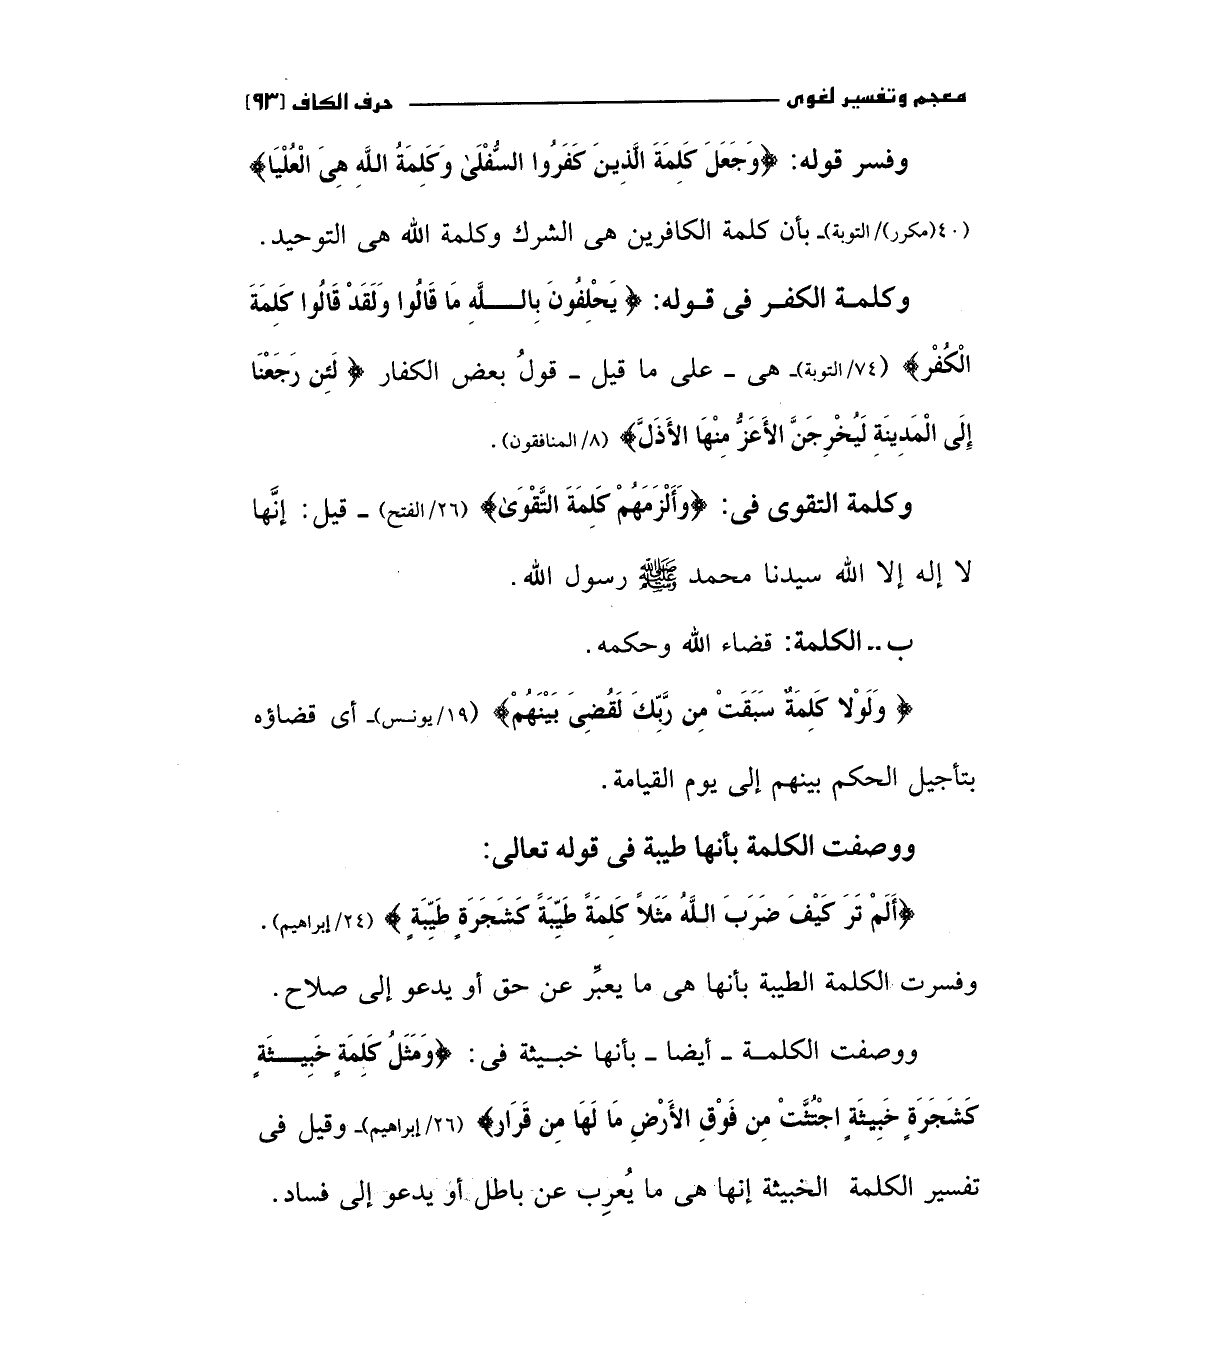 معجم وتفسير لغوى ــــــــــ حرف الكاف [٩٣]
وفسر قوله: ﴿وَجَعَلَ كَلِمَةَ الَّذِينَ كَفَرُوا السُّفْلَىٰ وَكَلِمَةُ اللَّهِ هِيَ الْعُلْيَا﴾
(٤٠(مكرر)/ التوبة)ـ بأن كلمة الكافرين هى الشرك وكلمة الله هى التوحيد.
وكلمة الكفر فى قوله: ﴿ يَحْلِفُونَ بِاللَّهِ مَا قَالُوا وَلَقَدْ قَالُوا كَلِمَةَ
الْكُفْرِ﴾ (٧٤/ التوبة)ـ هى ـ على ما قيل ـ قولُ بعض الكفار ﴿ لَئِن رَجَعْنَا
إِلَى الْمَدِينَةِ لَيُخْرِجَنَّ الأَعَزُّ مِنْهَا الأَذَلَّ﴾ (٨/ المنافقون).
وكلمة التقوى فى: ﴿وَأَلْزَمَهُمْ كَلِمَةَ التَّقْوَىٰ﴾ (٢٦/ الفتح) ـ قيل: إنَّها
لا إله إلا الله سيدنا محمد ﷺ رسول الله.
ب .. الكلمة: قضاء الله وحكمه.
﴿ وَلَوْلا كَلِمَةٌ سَبَقَتْ مِن رَّبِّكَ لَقُضِيَ بَيْنَهُمْ﴾ (١٩/ يونس)ـ أى قضاؤه
بتأجيل الحكم بينهم إلى يوم القيامة.
ووصفت الكلمة بأنها طيبة فى قوله تعالى:
﴿أَلَمْ تَرَ كَيْفَ ضَرَبَ اللَّهُ مَثَلاً كَلِمَةً طَيِّبَةً كَشَجَرَةٍ طَيِّبَةٍ ﴾ (٢٤/ إبراهيم).
وفسرت الكلمة الطيبة بأنها هى ما يعبِّر عن حق أو يدعو إلى صلاح.
ووصفت الكلمة ـ أيضا ـ بأنها خبيثة فى: ﴿وَمَثَلُ كَلِمَةٍ خَبِيثَةٍ
كَشَجَرَةٍ خَبِيثَةٍ اجْتُثَّتْ مِن فَوْقِ الأَرْضِ مَا لَهَا مِن قَرَارٍ﴾ (٢٦/ إبراهيم)ـ وقيل فى
تفسير الكلمة الخبيثة إنها هى ما يُعرِب عن باطل أو يدعو إلى فساد.